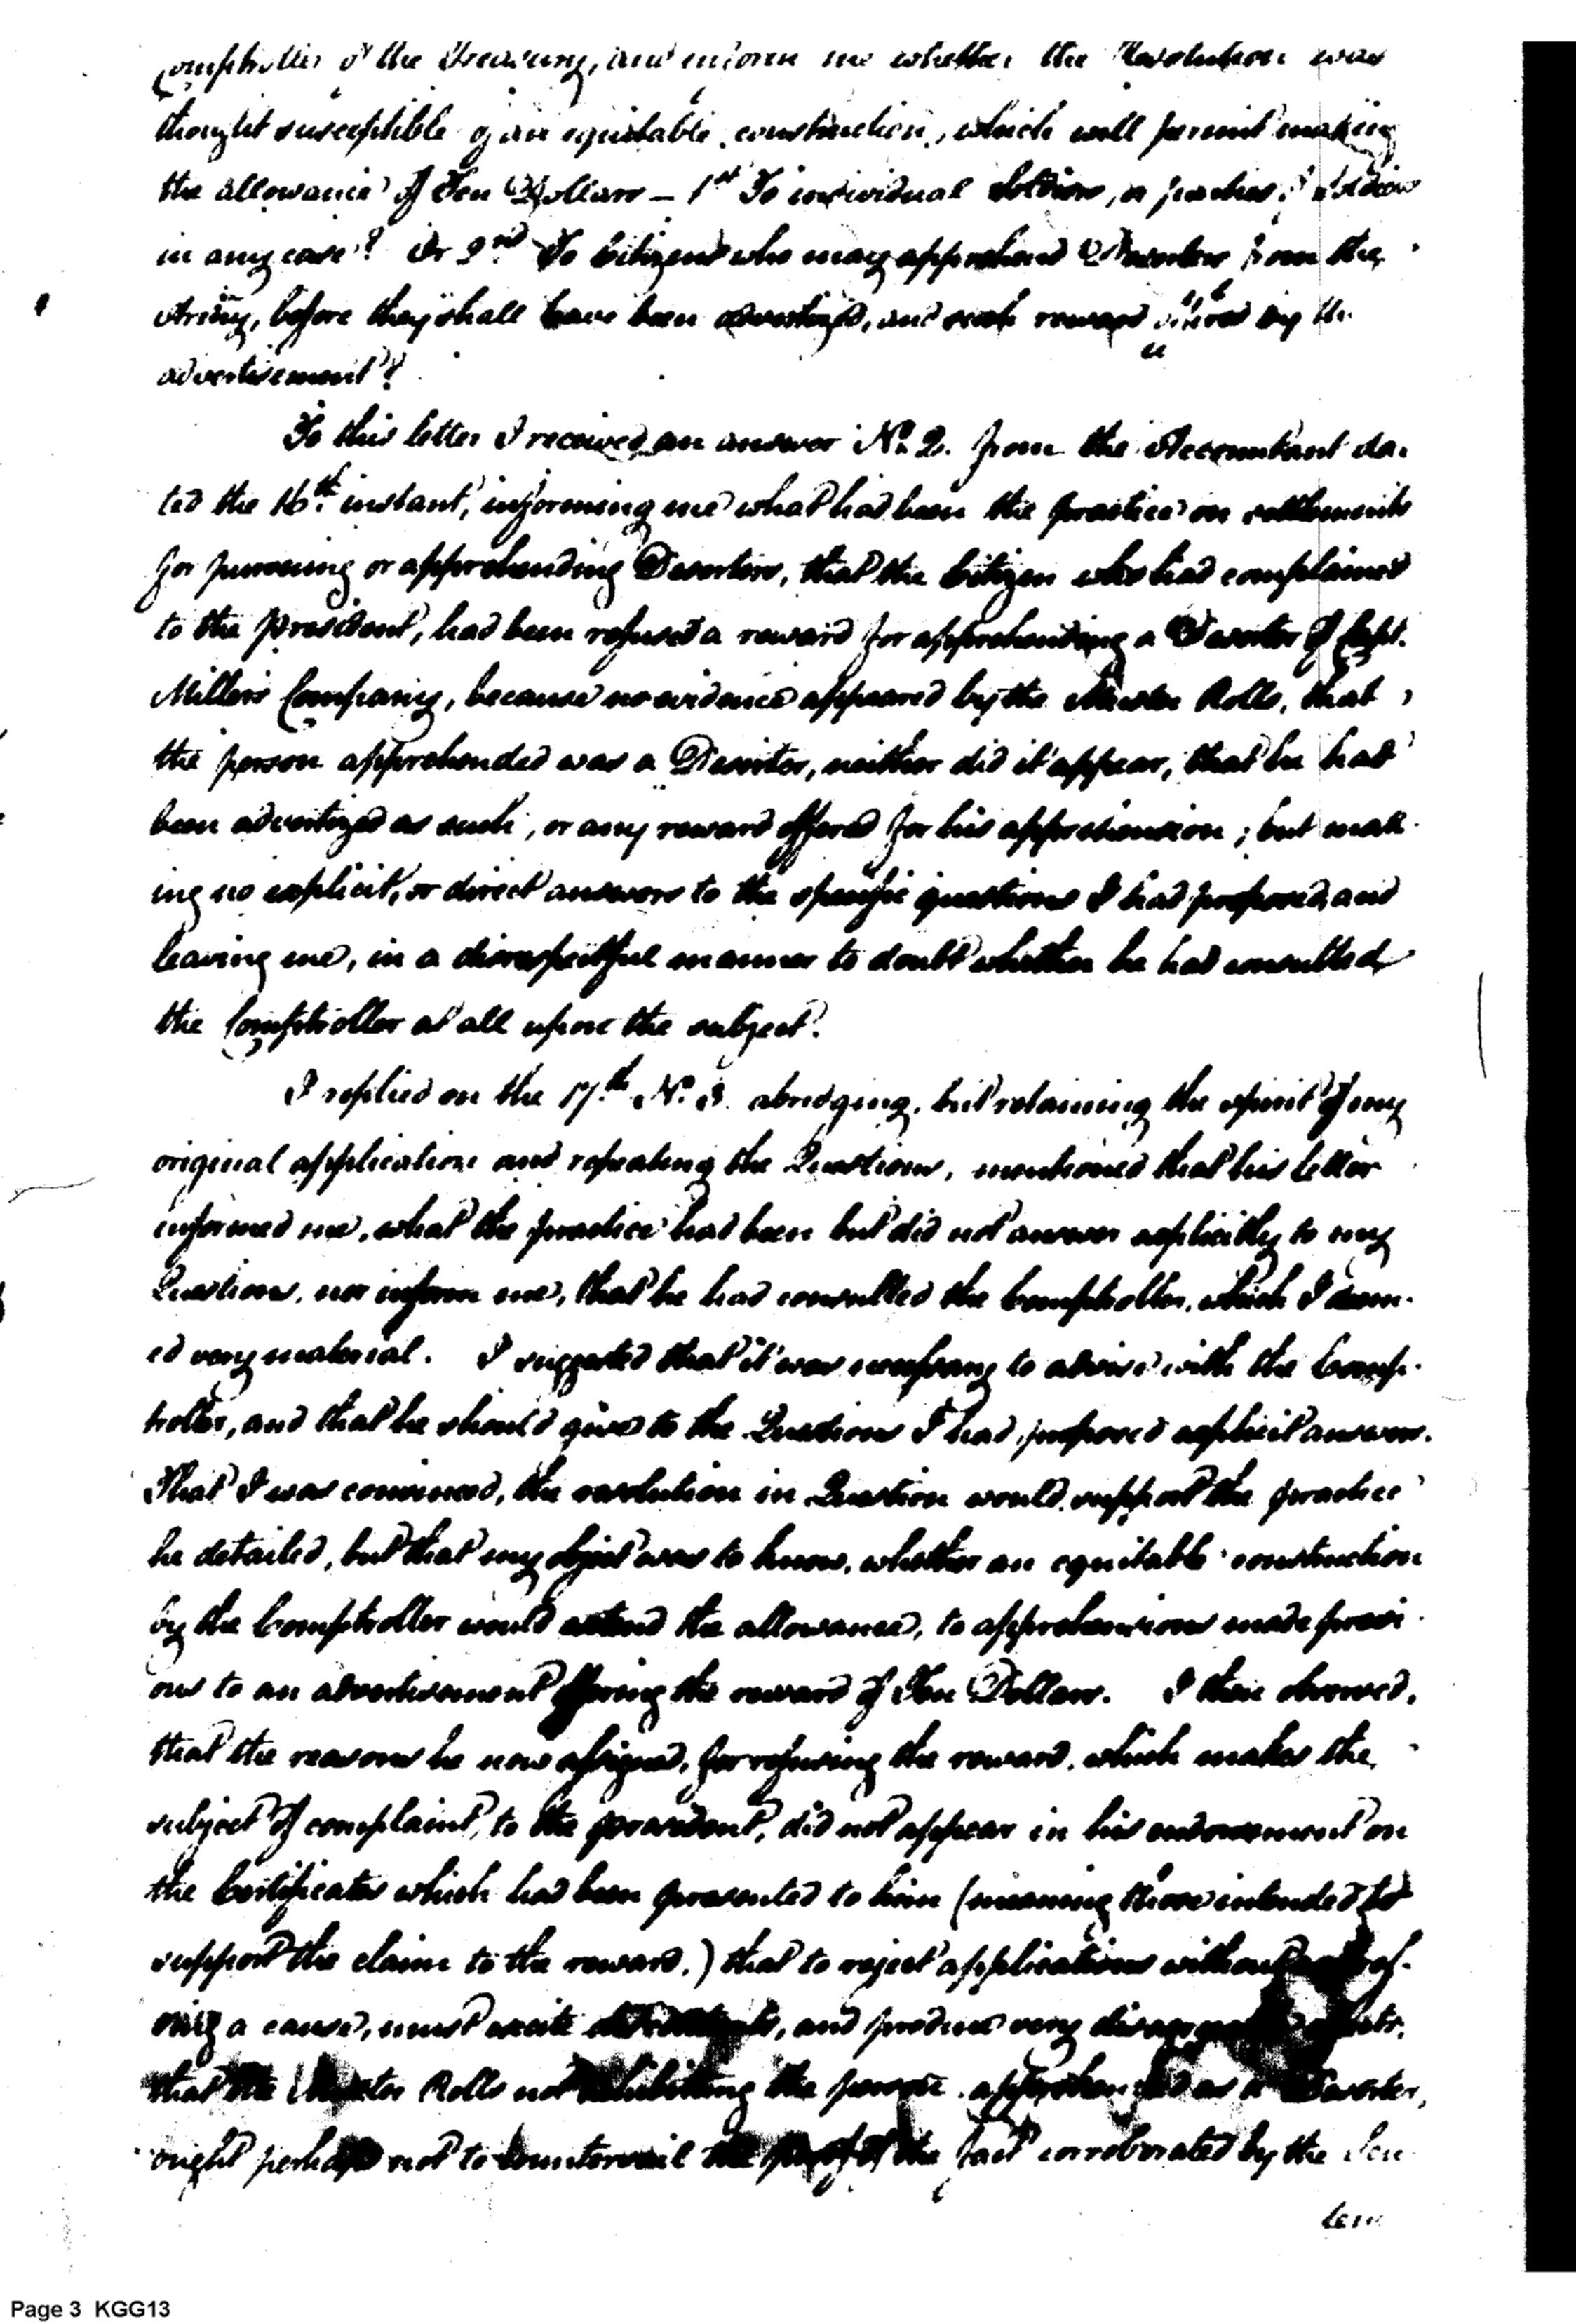 Comptroller of the Treasury, and inform me whether the Resolution was
thought susceptible of an equitable construction, which will permit making
the allowance of Ten Dollars – 1st To individual Soldiers, or parties of Soldiers
in any case? Or 2nd To Citizens who may apprehend Deserters from the
Army, before they shall have been advertized, and such reward offered by the
advertisement?
To this letter I received an answer No. 2. from the Accountant da-
ted the 16th instant, informing me what had been the practice on settlements
for pursuing or apprehending Deserters, that the Citizen who had complained
to the President, had been refused a reward for apprehending a Deserter of Capt.
Millers Company, because no evidence appeared by the Muster Rolls, that
the person apprehended was a Deserter, neither did it appear, that he had
been advertized as such, or any reward offered for his apprehension; but mak-
ing no explicit, or direct answers to the specific questions I had proposed, and
leaving me, in a disrespectful manner to doubt whether he had consulted
the Comptroller at all upon the subject.
I replied on the 17th No. 3. abridging, but retaining the spirit of my
original application and repeating the Questions, mentioned that his letter
informed me, what the practice had been but did not answer explicitly to my
Questions, nor inform me, that he had consulted the Comptroller, which I deem-
ed very material. I suggested that it was necessary to advise with the Comp-
troller, and that he should give to the Questions I had proposed explicit answers.
That I was convinced, the resolution in Question would support the practice
he detailed, but that my object was to know, whether an equitable construction
by the Comptroller would extend the allowance, to apprehensions made previ-
ous to an advertisement offering the reward of Ten Dollars. I then observed,
that the reasons he now assigned, for refusing the reward, which makes the
subject of complaint, to the president, did not appear in his endorsement on
the Certificates which had been presented to him (meaning those intended to
support the claim to the reward.) that to reject applications without
a cause, must excite and produce very disagreeable effects.
that the Muster Rolls not exhibiting the person apprehended as a Deserter,
ought perhaps not to countervail the proof of the fact corroborated by the
Page 3 KGG13